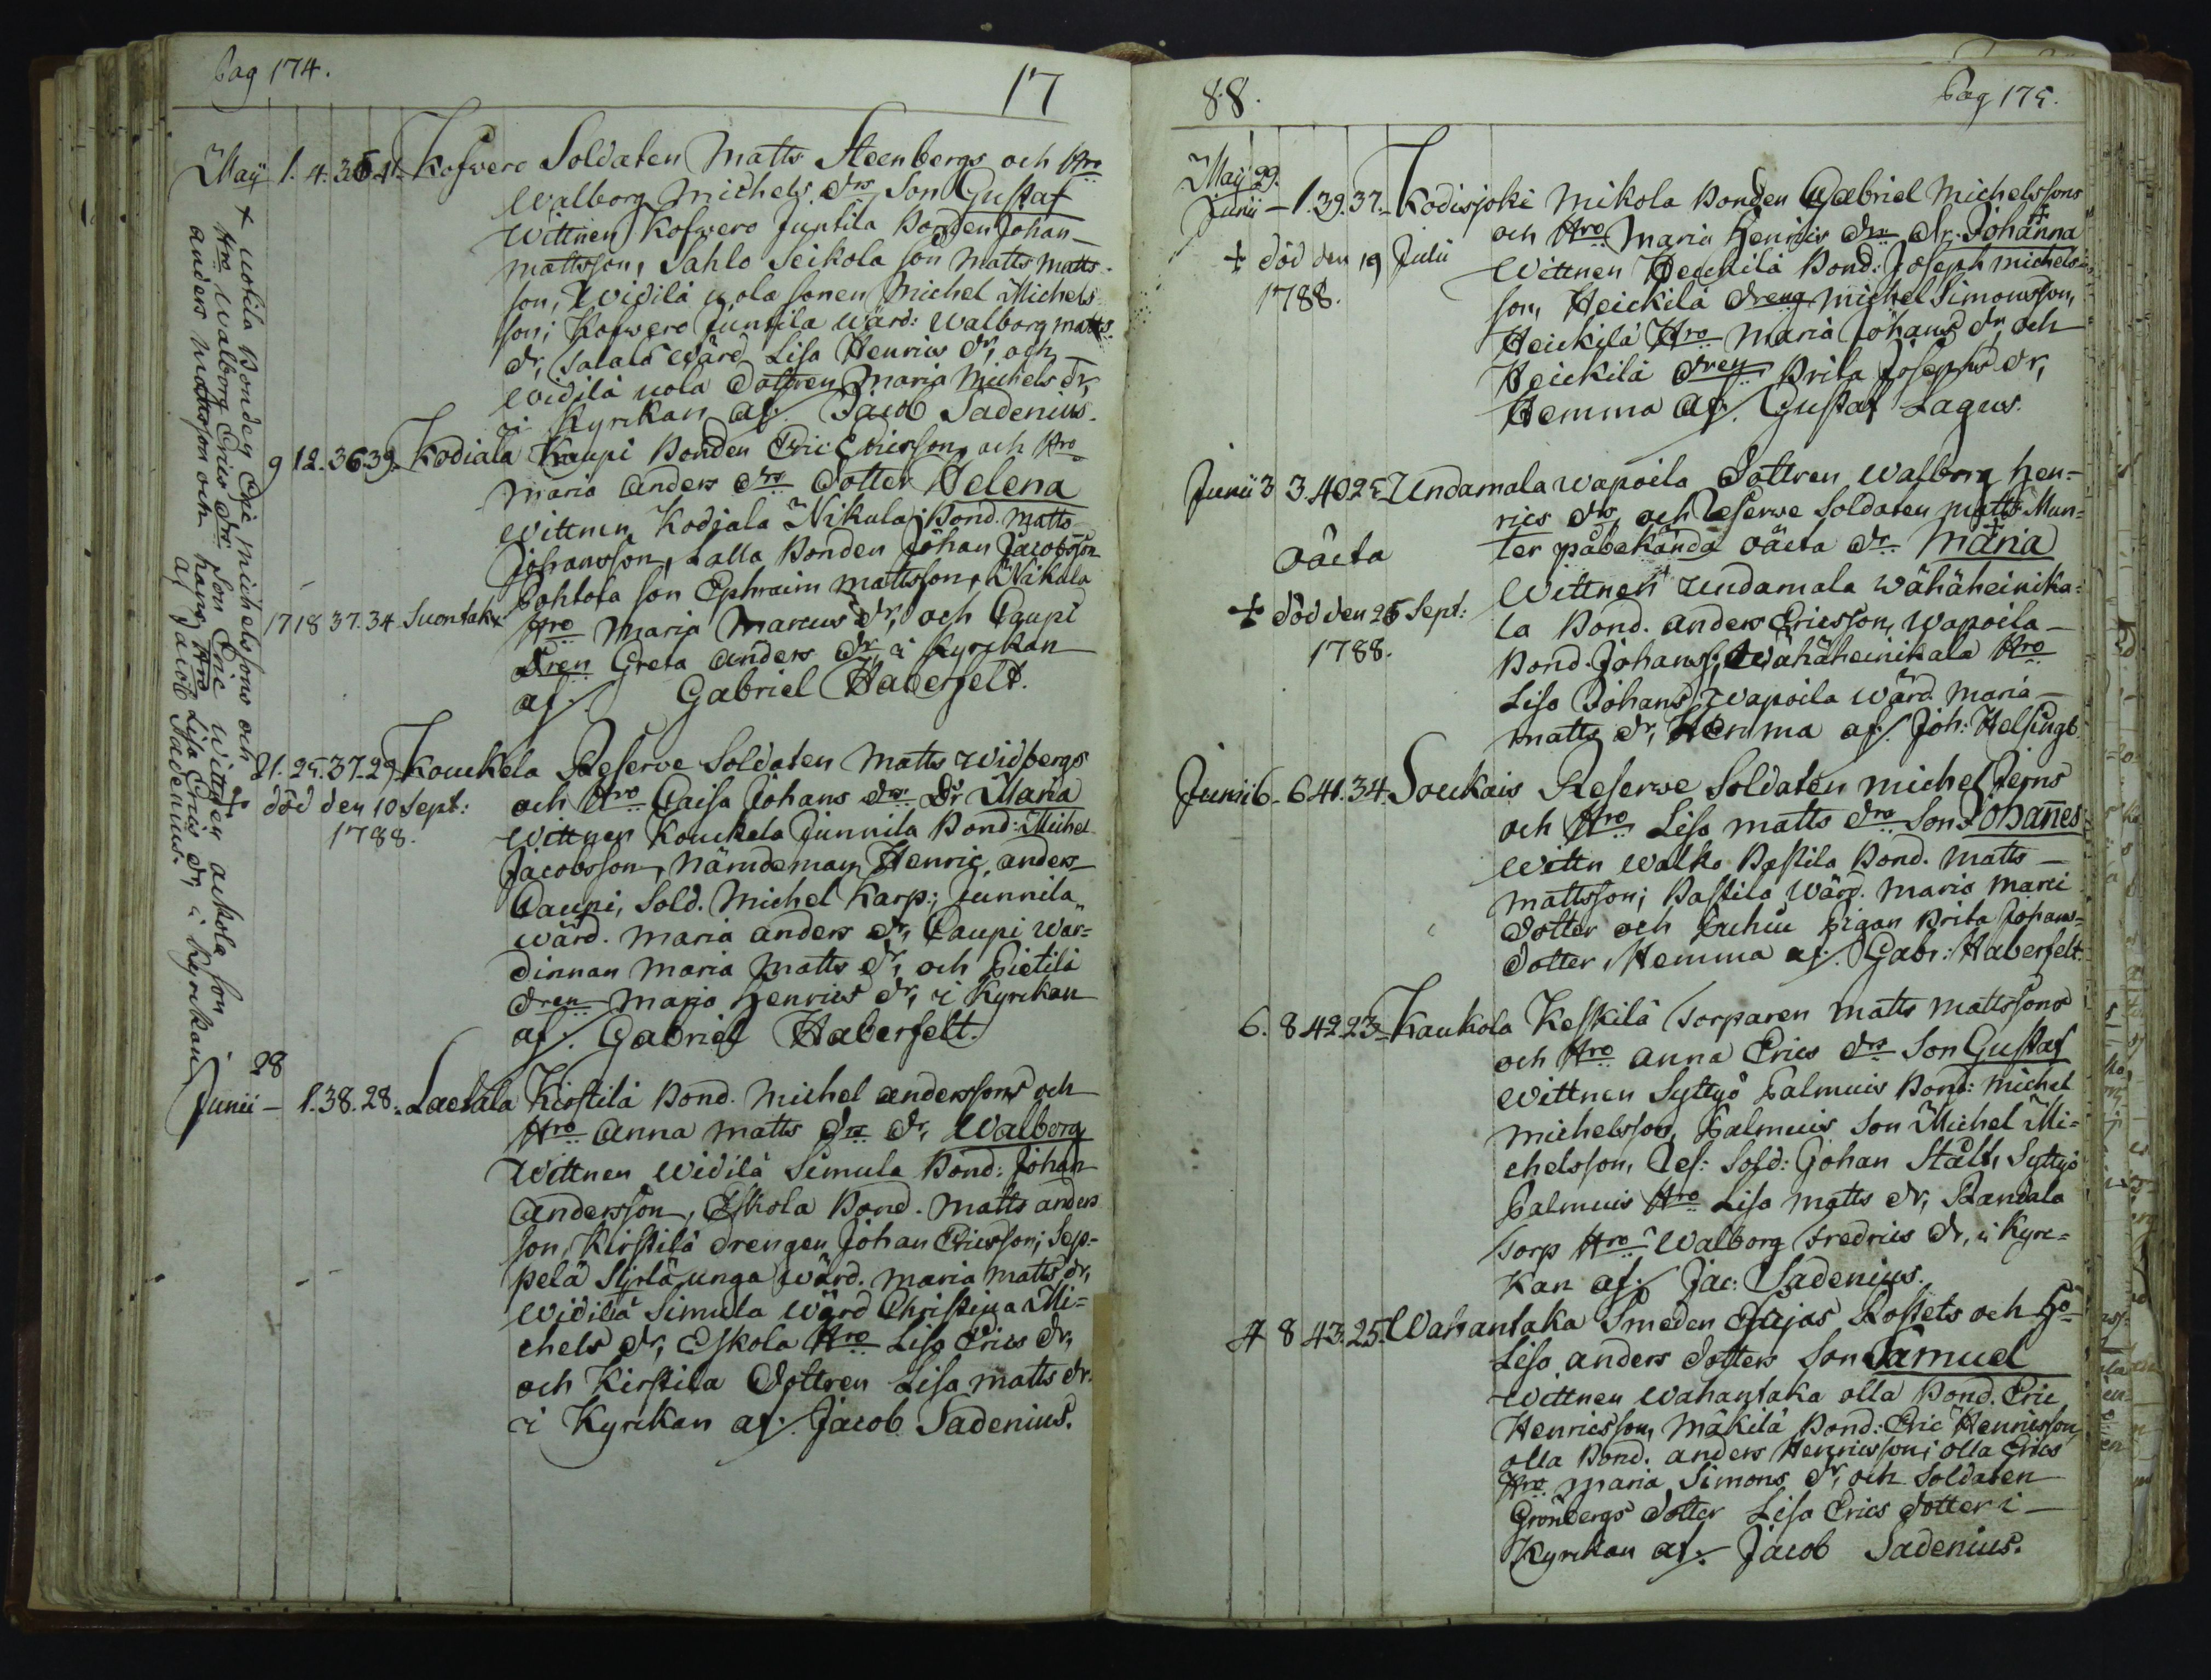 Pag 174.
17
Maÿ 1. 4. 35 41. Kofvero Soldaten Matts Steenbergs och Hro
Walborg Michels drs Son Gustaf
Wittnen Kofvero Juntila Bonden Johan
mattsson, Sahlo Seikola son Matts Matts-
son, Widilä uola sonen Michel Michels-
son; Kofvero Juntila Wärd: Walborg matts
dr, Salala Wärd Lisa Henrics dr, och
Widilä uola dottren Maria Michels dr,
i Kyrckan af/. Jacob Sadenius.
9 12. 36 39. Kodiala Kaupi Bonden Eric Ericssons och Hro
Maria Anders drs Dotter Helena
Wittnen Kodjala Nikula Bond. Matts
Johansson, Lalla Bonden Johan Jacobsson
Pohlota son Ephraim mattsson, Nikula
Hro Maria Marcus dr, och Caupi
dren Greta Anders dr, i Kyrckan
af/. Gabriel Haberfelt.
17 18 37. 34 Suontaka
+ uotila Bonden Eric Michelssons och
Hro Walborg Erics drs Son Eric Wittnen aukola son
anders mattsson och hans Hro Lisa Erics dr, i Kyrckan
af Jacob Sadenius.
21. 25. 37. 29 Kouckela Reserve Soldaten Matts Widbergs
och Hro Caisa Johans drs Dr Maria
Wittnen Kouckela Junnila Bond: Michel
Jacobsson, Nämdeman Henric anders
Caupi, Sold. Michel Karp; Junnila
Wärd. Maria anders dr, Caupi Wär=
dinnan Maria Matts dr, och Pietilä
dren Maria Henrics dr, i Kyrckan
af/. Gabriel Haberfelt.
+ död den 10 Sept:
1788.
28
Junii - 1. 38. 28. Laetala Kirstilä Bond. Michel anderssons och
Hro Anna Matts drs dr, Walborg
Wittnen Widilä Simula Bond: Johan
Andersson, Eskola Bond. Matts anders
son, Kirstilä drengen Johan Ericsson; Sep=
pelä Sijrlä unga Wärd. Maria Matts dr,
Widilä Simula Wärd Christina Mi=
chels dr, Eskola Hro Lisa Erics dr,
och Kirstila Dottren Lisa Matts dr.
i Kyrckan af/. Jacob Sadenius.
88.
Pag 175.
Maÿ 29.
Junii - 1. 39. 37. Kodisjoki Mikola Bonden Gabriel Michelssons
och Hro Maria Henrics drs dr. Johanna
Wittnen Heickilä Bond: Joseph michels
son, Heickilä dreng Michel Simonsson,
Heickilä Hro Maria Johans dr, och
Heickilä dren Brita Josephs dr,
Hemma af/. Gustaf Lagus.
+ död den 19 Julii
1788.
Junii 3 3. 40 25 Undamala Wapoila Dottren Walborg Hen=
rics drs och Reserve Soldaten Matts Mun=
ter påbekända oäcta dr Maria
Wittnen Undamala Wähäheinika=
la Bond. Anders Ericsson, Wapoila
Bond. Johans, Wähäheinikala Hro
Lisa Johans, Wapoila Wärd. Maria
matts dr, Hemma af/. Joh: Helsingb.
oäcta
+ död den 25 Sept:
1788.
Junii 6. 6 41. 34. Soukais Reserve Soldaten Michel Jerns
och Hro Lisa Matts drs Son Johañes
Wittn Walko Pastila Bond. Matts
mattsson; Pastila Wärd. Maria Marci
dotter och Juhui pigan Brita Johans=
dotter, Hemma af/. Gabr: Haberfelt.
6. 8 42 23. Kaukola Keskilä Torparen Matts Mattssons
och Hro Anna Erics drs Son Gustaf
Wittnen Syttyö Palmuis Bond: Michel
Michelsson, Palmuis Son Michel Mi=
chelsson, Res: Sold: Johan Stålt, Syttyö
Palmuis Hro Lisa Matts dr, Randala
Torp Hro Walborg Fredrics dr, i Kyrc=
kan af/. Jac: Sadenius.
4 8 43. 25. Wahantaka Smeden Esajas Rostets och Ho
Lisa anders dotters Son Samuel
Wittnen Wahantaka olla Bond. Eric
Henricsson, Mäkilä Bond: Eric Henricsson,
olla Bond. anders Henricsson; olla Erics
Hro Maria Simons dr, och Soldaten
Grönbergs dotter Lisa Erics dotter i
Kyrckan af/. Jacob Sadenius.